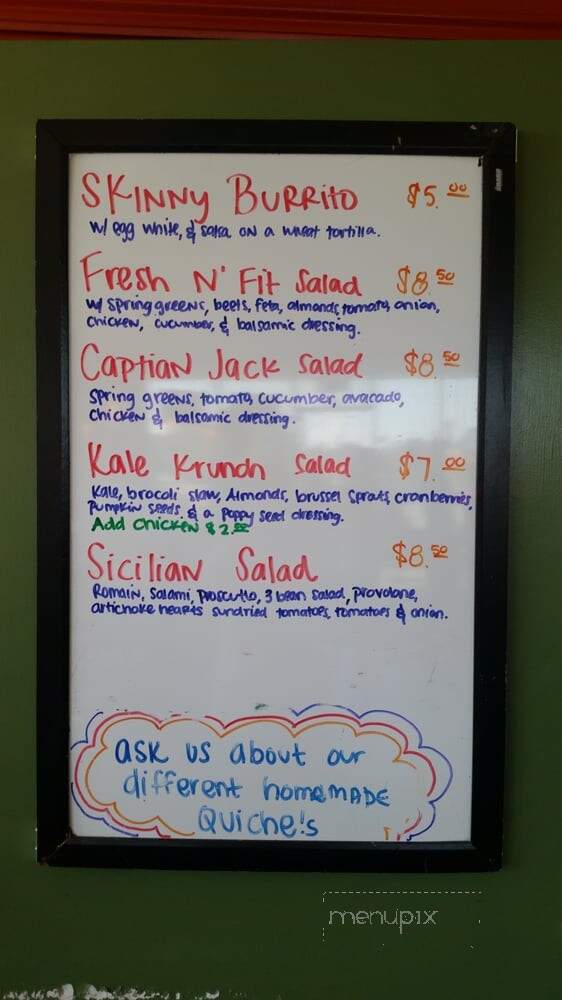 SKINNY BURRITO $5.00
w/ egg white, & salsa ON a wheat tortilla.
Fresh N' Fit Salad $8.50
w/ spring greens, beets, feta, almonds, tomato, onion,
chicken, cucumber, & balsamic dressing.
CAPTIAN JACK Salad $8.50
spring greens, tomato, cucumber, avacado,
chicken & balsamic dressing.
Kale Krunch Salad $7.00
Kale, brocoli slaw, Almonds, brussel sprats, cranberries,
pumpkin seeds, & a poppy seed dressing.
Add chicken $2.00
Sicilian Salad $8.50
Romain, salami, proscutto, 3 bean salad, provolone,
artichoke hearts sundried tomatoes, tomatoes & onion.
ask us about our
different homeMADE
Quiche!s
menupix